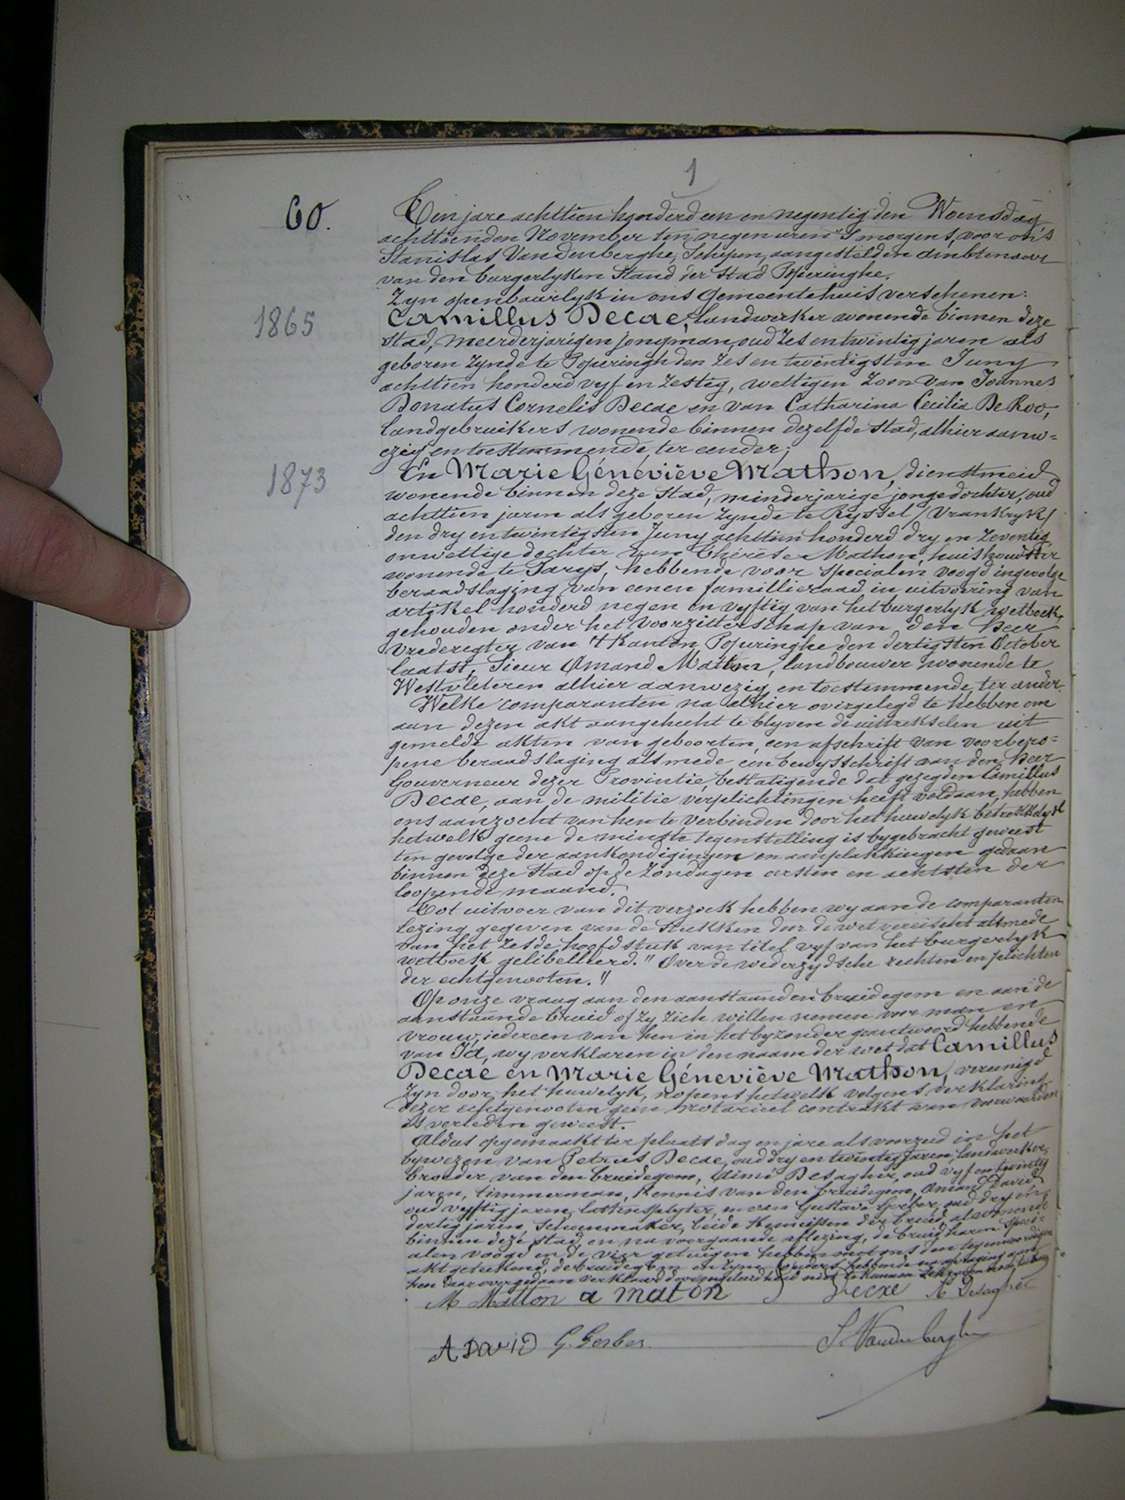 1
60.
Ten jare achttien honderd een en negentig den Woensdag
achttienden November ten negen uren 's morgens, voor ons
Stanislas Vandenberghe, Schepen, aangestelden ambtenaar
van den burgerlyken Stand der Stad Poperinghe,
Zyn openbaarlyk in ons Gemeentehuis verschenen:
1865
Camillus Decae, landwerker wonende binnen deze
stad, meerderjarigen jongman, oud zes en twintig jaren als
geboren zynde te Poperingh den zes en twintigsten Juny
achttien honderd vyf en zestig, wettigen zoon van Joannes
Donatus Cornelis Decae en van Catharina Cecilia De Roo,
landgebruikers wonende binnen dezelfde stad, alhier aanw=
ezig en toestemmende, ter eender;
1873
En Marie Géneviève Mathon, dienstmeid
wonende binnen deze stad, minderjarige jongedochter, oud
achttien jaren als geboren zynde te Ryssel (Vrankryk)
den dry en twintigsten Juny achttien honderd dry en zeventig
onwettige dochter van Thérèse Mathon, huishoudster
wonende te Parys, hebbende voor specialen voogd ingevolge
beraadslaging van eenen familieraad in uitvoering van
artykel honderd negen en vyftig van het burgerlyk wetboek,
gehouden onder het voorzitterschap van den Heer
Vrederegter van 't Kanton Poperinghe den dertigsten October
laatst, Sieur Amand Maton, landbouwer wonende te
Westvleteren alhier aanwezig en toestemmende, ter ander.
Welke comparanten na alhier overgelegd te hebben om
aan dezen akt aangehecht te blyven de uittrekselen uit
gemelde akten van geboorten, een afschrift van voorbero=
pene beraadslaging alsmede een bewysschrift van den Heer
Gouverneur dezer Provintie, bestatigende dat gezegden Camillus
Decae, aan de militie verplichtingen heeft voldaan, hebben
ons aanzocht van hen te verbinden door het huwelyk betrekkelyk
hetwelk geene de minste tegenstelling is bygebracht geweest
ten gevolge der aankondigingen en aanplakkingen gedaan
binnen deze stad op de zondagen eersten en achtsten der
loopende maand.
Tot uitvoer van dit verzoek hebben wy aan de comparanten
lezing gegeven van de stukken door de wet vereischt alsmede
van het zesde hoofdstuk van titel vyf van het burgerlyk
wetboek gelibelleerd. "Over de wederzydsche rechten en plichten
der echtgenooten."
Op onze vraag aan den aanstaanden bruidegom en aan de
aanstaande bruid of zy zich willen nemen voor man en
vrouw, iedereen van hen in het byzonder geantwoord hebbende
van Ja, wy verklaren in den naam der wet dat Camillus
Decae en Marie Géneviève Mathon, vereenigd
Zyn door het huwelyk, nopens hetwelk volgens verklaring
dezer echtgenooten geen notarieel contrakt van voorwaarden
is verleden geweest.
Aldus opgemaakt ter plaats dag en jare als voorzeid in het
bywezen van Petrus Decae, oud dry en twintig jaren, landwerker,
broeder van den bruidegom, Aimé Desaghir, oud vyf en twintig
jaren, timmerman, kennis van den bruidegom, Amand David
oud vyftig jaren, lattensplyter, en van Gustave Gerber, oud dry en
dertig jaren, schoenmaker, beide kennissen der bruid, alle wonende
binnen deze stad, en na voorgaande aflezing, de bruid haren speci=
alen voogd en de vier getuigen hebben met ons den tegenwoordigen
akt geteekend, de bruidegom en zyne ouders hebbende na afvraging aan
hen daarover gedaan verklaard
M Mathon a maton P Decae A Desaghir
A DaviD G. Gerber. S. Vandenberghe